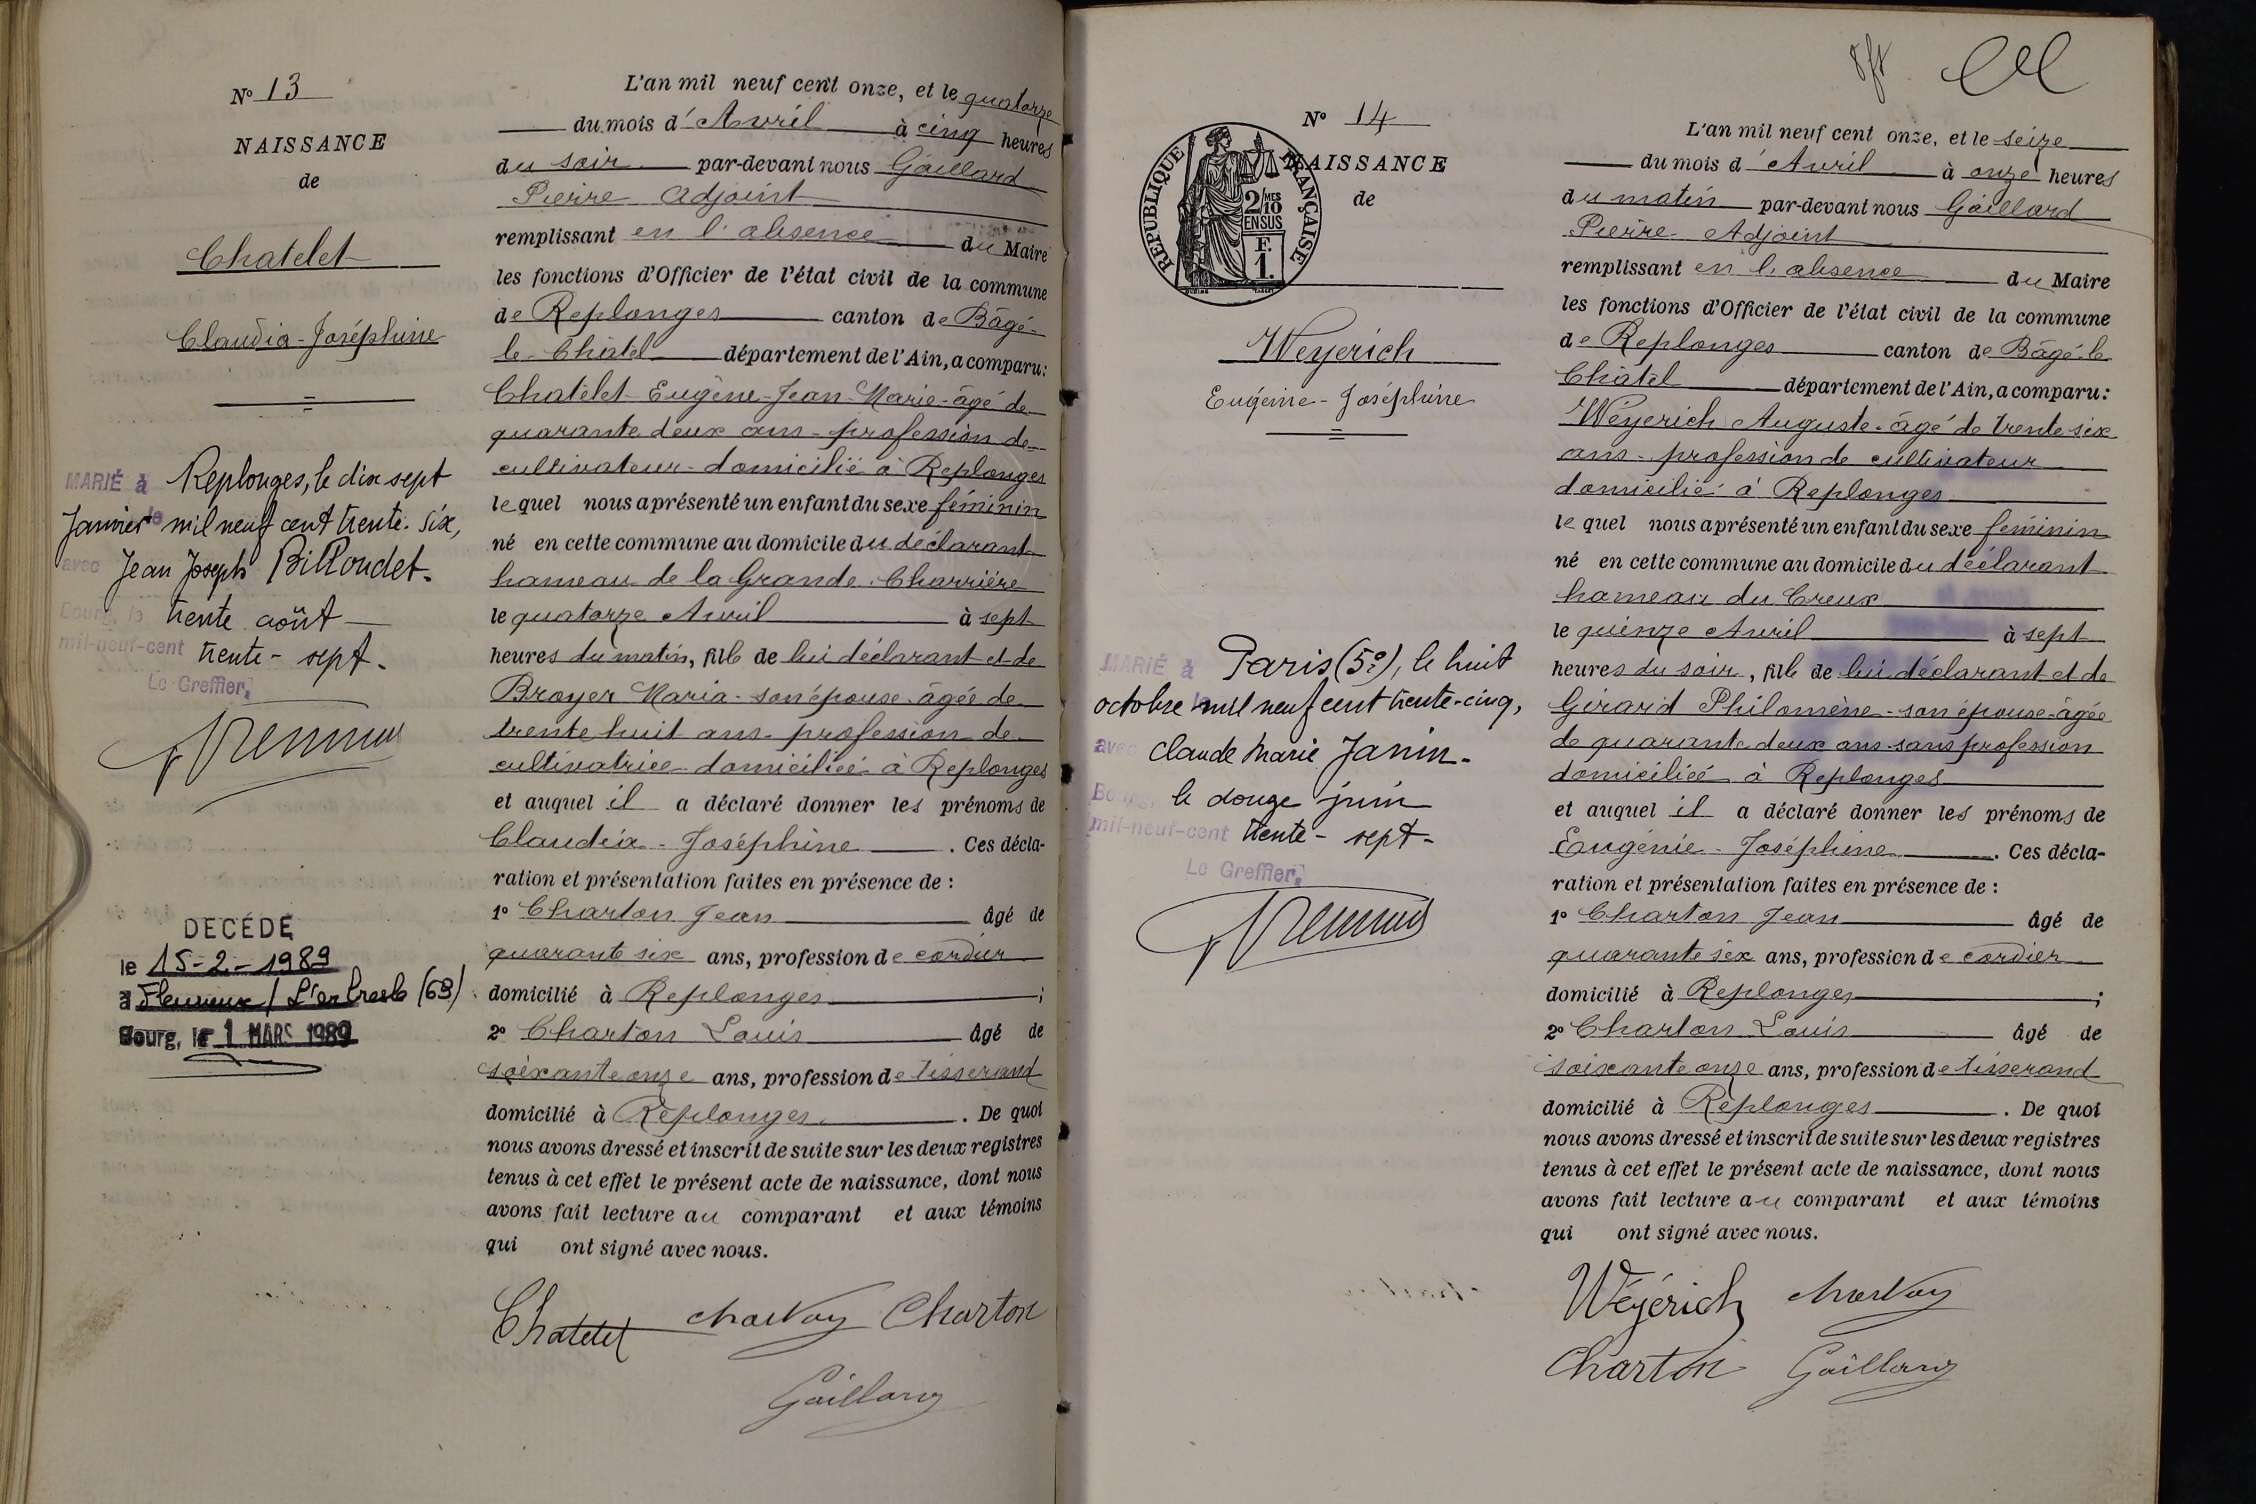 Nº 13
NAISSANCE
de
Chatelet
Claudia-Joséphine
MARIÉ à Replonges, le dix sept
Janvier le mil neuf cent trente-six,
avec Jean Joseph Billoudet.
Bourg, le trente août
mil-neuf-cent trente-sept.
Le Greffier,
DÉCÉDÉ
le 15-2-1989
à Fleurieux / L'arbresle (69)
Bourg, le 1 MARS 1989
L'an mil neuf cent onze, et le quatorze
du mois d'Avril à cinq heures
du soir par-devant nous Gaillard
Pierre Adjoint
remplissant en l'absence du Maire
les fonctions d'Officier de l'état civil de la commune
de Replonges canton de Bâgé-
le-Châtel département de l'Ain, a comparu:
Chatelet Eugène-Jean-Marie-âgé de
quarante deux ans-profession de
cultivateur-domicilié à Replonges
lequel nous a présenté un enfant du sexe féminin
né en cette commune au domicile du déclarant
hameau de la Grande Charrière
le quatorze Avril à sept
heures du matin, fille de lui déclarant et de
Broyer Maria-son épouse-âgée de
trente huit ans-profession de
cultivatrice-domiciliée à Replonges
et auquel il a déclaré donner les prénoms de
Claudia-Joséphine. Ces décla-
ration et présentation faites en présence de :
1º Charton Jean âgé de
quarante six ans, profession de cordier
domicilié à Replonges ;
2º Charton Louis âgé de
soixante onze ans, profession de tisserand
domicilié à Replonges. De quoi
nous avons dressé et inscrit de suite sur les deux registres
tenus à cet effet le présent acte de naissance, dont nous
avons fait lecture au comparant et aux témoins
qui ont signé avec nous.
Chatelet Charton
Gaillard
Nº 14
RÉPUBLIQUE FRANÇAISE
2/10 MES
EN SUS
F.
1.
NAISSANCE
de
Weyerich
Eugénie-Joséphine
MARIÉ à Paris (5e), le huit
octobre le mil neuf cent trente-cinq,
avec Claude Marie Janin.
Bourg, le douze juin
mil-neuf-cent trente-sept.
Le Greffier,
L'an mil neuf cent onze, et le seize
du mois d'Avril à onze heures
du matin par-devant nous Gaillard
Pierre Adjoint
remplissant en l'absence du Maire
les fonctions d'Officier de l'état civil de la commune
de Replonges canton de Bâgé-le
Châtel département de l'Ain, a comparu:
Weyerich Auguste-âgé de trente six
ans-profession de cultivateur
domicilié à Replonges
lequel nous a présenté un enfant du sexe féminin
né en cette commune au domicile du déclarant
hameau du Creux
le quinze Avril à sept
heures du soir, fille de lui déclarant et de
Gérard Philomène-son épouse-âgée
de quarante deux ans-sans profession
domiciliée à Replonges
et auquel il a déclaré donner les prénoms de
Eugénie-Joséphine. Ces décla-
ration et présentation faites en présence de :
1º Charton Jean âgé de
quarante six ans, profession de cordier
domicilié à Replonges ;
2º Charton Louis âgé de
soixante onze ans, profession de tisserand
domicilié à Replonges. De quoi
nous avons dressé et inscrit de suite sur les deux registres
tenus à cet effet le présent acte de naissance, dont nous
avons fait lecture au comparant et aux témoins
qui ont signé avec nous.
Weyerich
Charton Gaillard